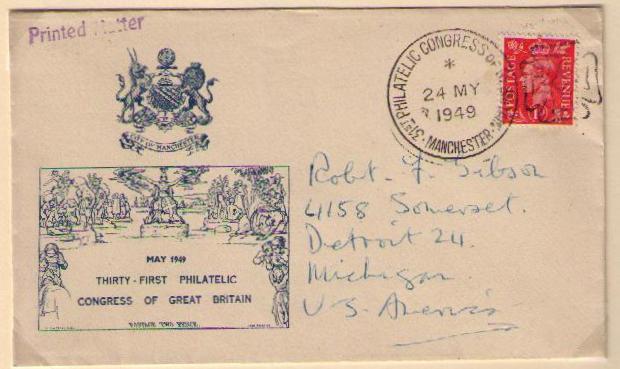 Printed Matter
CITY OF MANCHESTER
31ST PHILATELIC CONGRESS OF
*
24 MY
1949
· MANCHESTER ·
POSTAGE
REVENUE
1D
Robt. F. Gibson
4158 Somerset.
Detroit 24.
Michigan
U.S. America
MAY 1949
THIRTY-FIRST PHILATELIC
CONGRESS OF GREAT BRITAIN
POSTAGE TWO PENCE.